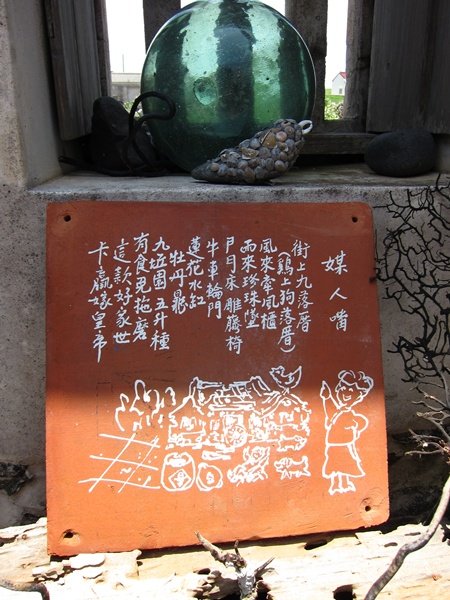 媒人嘴
街上九落厝
(鷄上狗落厝)
風來牽風櫃
雨來珍珠墜
月床 雕藤椅
牛車輪門
蓮花水缸
牡丹
九坵園 五升種
有食免拖磨
這款好家世
卡贏嫁皇帝